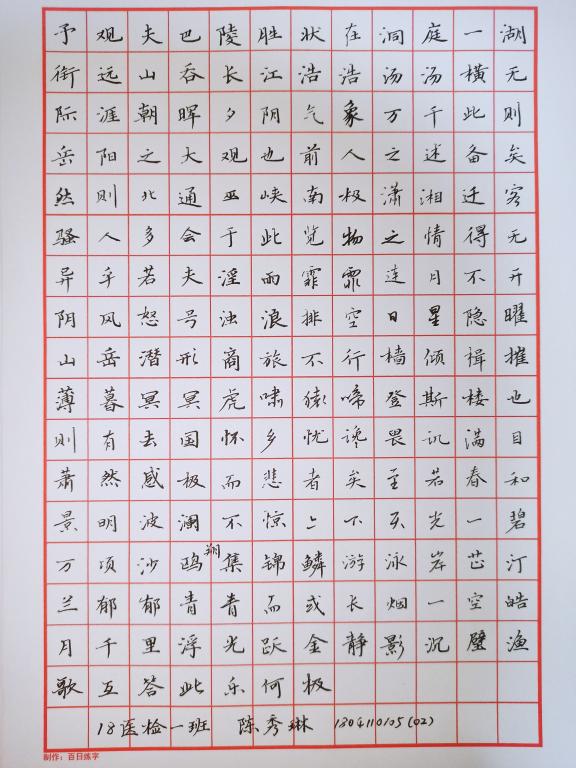 予观夫巴陵胜状在洞庭一湖
衔远山吞长江浩浩汤汤横无
际涯朝晖夕阴气象万千此则
岳阳之大观也前人之述备矣
然则北通巫峡南极潇湘迁客
骚人多会于此览物之情得无
异乎若夫淫雨霏霏连月不开
阴风怒号浊浪排空日星隐曜
山岳潜形商旅不行樯倾楫摧
薄暮冥冥虎啸猿啼登斯楼也
则有去国怀乡忧谗畏讥满目
萧然感极而悲者矣至若春和
景明波澜不惊上下天光一碧
万顷沙鸥翔集锦鳞游泳岸芷汀
兰郁郁青青而或长烟一空皓
月千里浮光跃金静影沉璧渔
歌互答此乐何极
18医检一班 陈秀琳 1804110105(02)
制作:百日练字